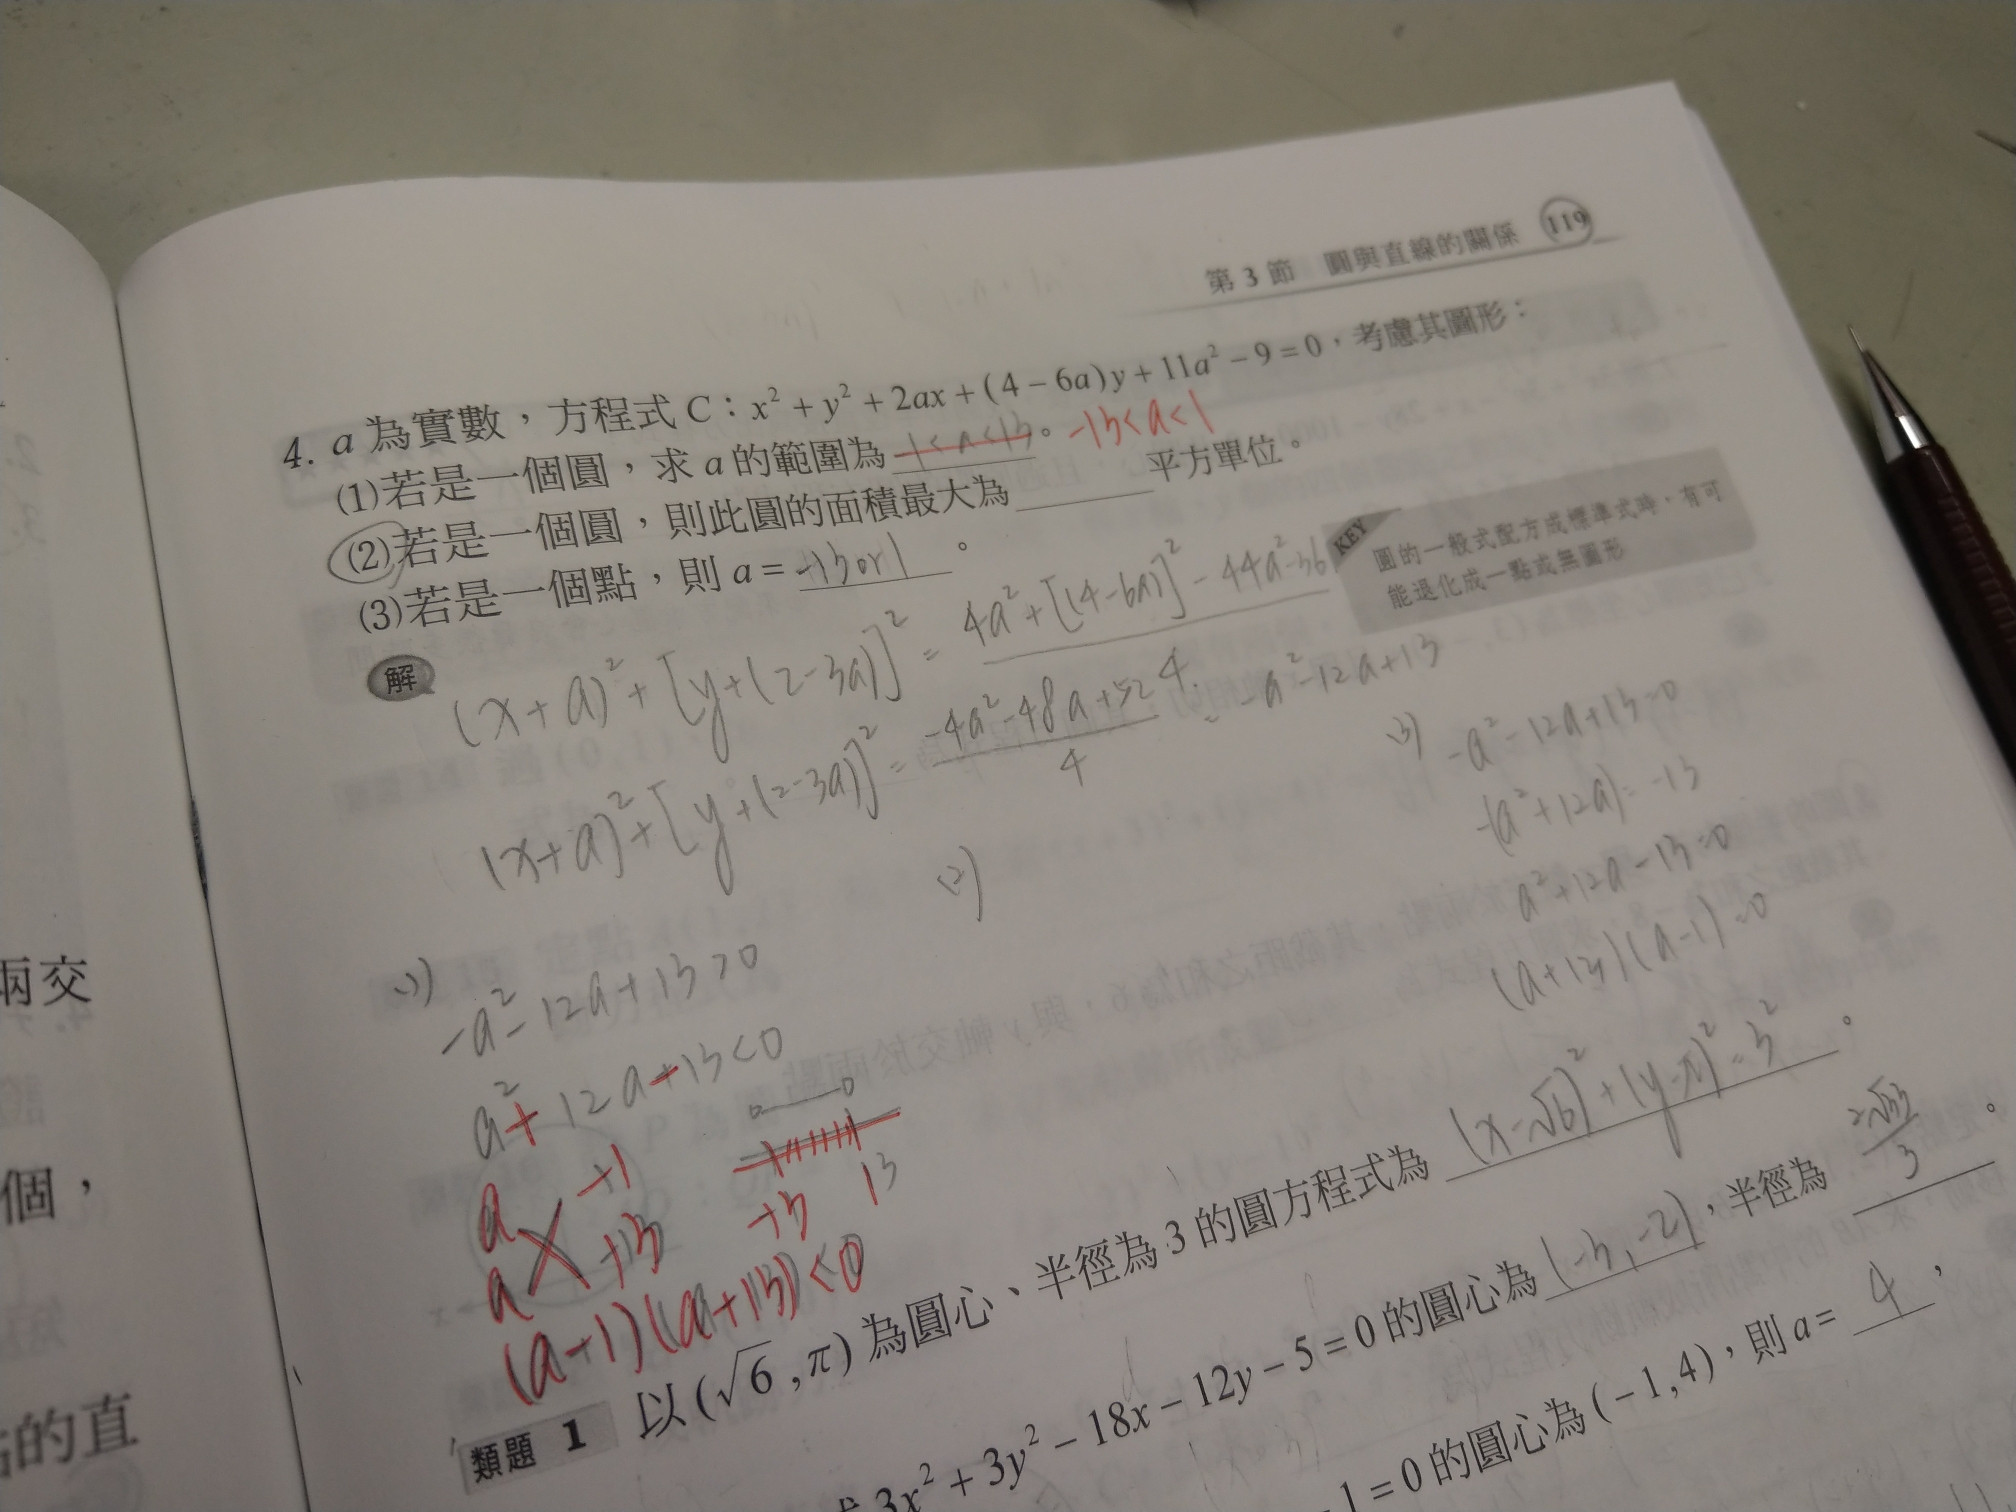 第 3 節 圓與直線的關係 119
4. a 為實數，方程式 C：x² + y² + 2ax + (4 − 6a)y + 11a² − 9 = 0，考慮其圖形：
(1)若是一個圓，求 a 的範圍為 -1<a<13。 -13<a<1
(2)若是一個圓，則此圓的面積最大為______平方單位。
(3)若是一個點，則 a = -13 or 1 。
KEY 圓的一般式配方成標準式時，有可
能退化成一點或無圖形
解
(x+a)² + [y+(2-3a)]² = 4a²+[(4-6a)]²-44a²-36 / 4
(x+a)² + [y+(2-3a)]² = -4a²-48a+52 / 4 = -a²-12a+13
(1)
-a²-12a+13>0
a²+12a-13<0
a +1
a +13
-13 13
(a-1)(a+13)<0
(2)
(3) -a²-12a+13=0
-(a²+12a)=-13
a²+12a-13=0
(a+13)(a-1)=0
類題 1 以 (√6 , π) 為圓心、半徑為 3 的圓方程式為 (x-√6)²+(y-π)²=3² 。
3x² + 3y² − 18x − 12y − 5 = 0 的圓心為 (-3,-2)，半徑為 2√33/3 。
1 = 0 的圓心為 (− 1 , 4)，則 a = 4，
兩交
個，
的直